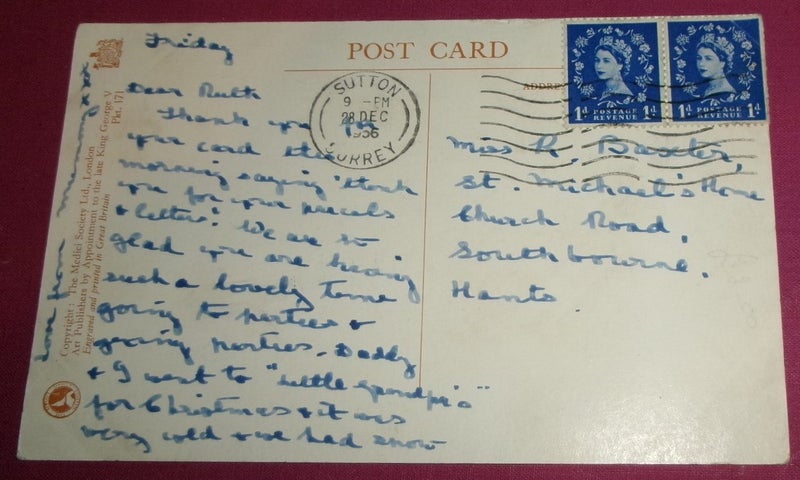 POST CARD
ADDRE
SUTTON
9 - PM
28 DEC
1956
SURREY
1d POSTAGE REVENUE 1d
1d POSTAGE REVENUE 1d
Friday
Dear Ruth
Thank you for
your card this
morning saying "thank
you for your parcels
& letter". We are so
glad you are having
such a lovely time
going to parties &
giving parties. Daddy
& I went to "little grandpa's"
for Christmas & it was
very cold & we had snow
love from Mummy xxx
Miss R. Baxter,
St. Michael's Home
Church Road,
Southbourne,
Hants.
Copyright: The Medici Society Ltd., London
Art Publishers by Appointment to the late King George V
Engraved and printed in Great Britain
Pkt. 171